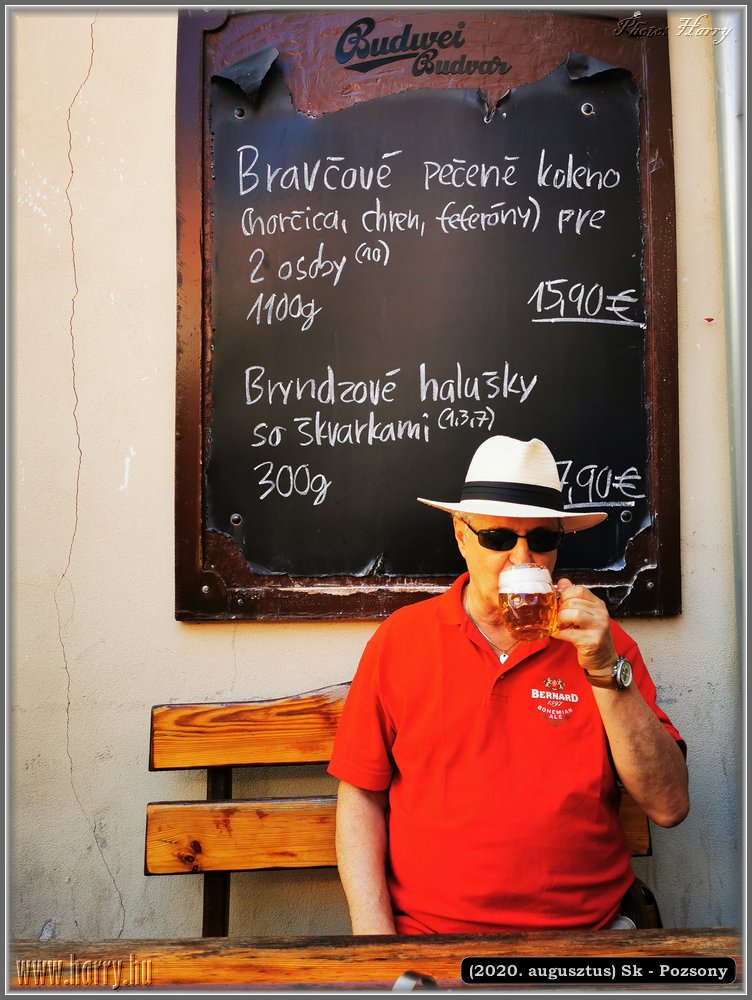 Photo: Harry
Budwei
Budvar
Bravčové pečené koleno
(horčica, chren, feferóny) pre
2 osoby (10)
1100g
15,90 €
Bryndzové halušky
so škvarkami (1,3,7)
300g
7,90 €
BERNARD
1597
BOHEMIAN
ALE
www.harry.hu
(2020. augusztus) Sk - Pozsony